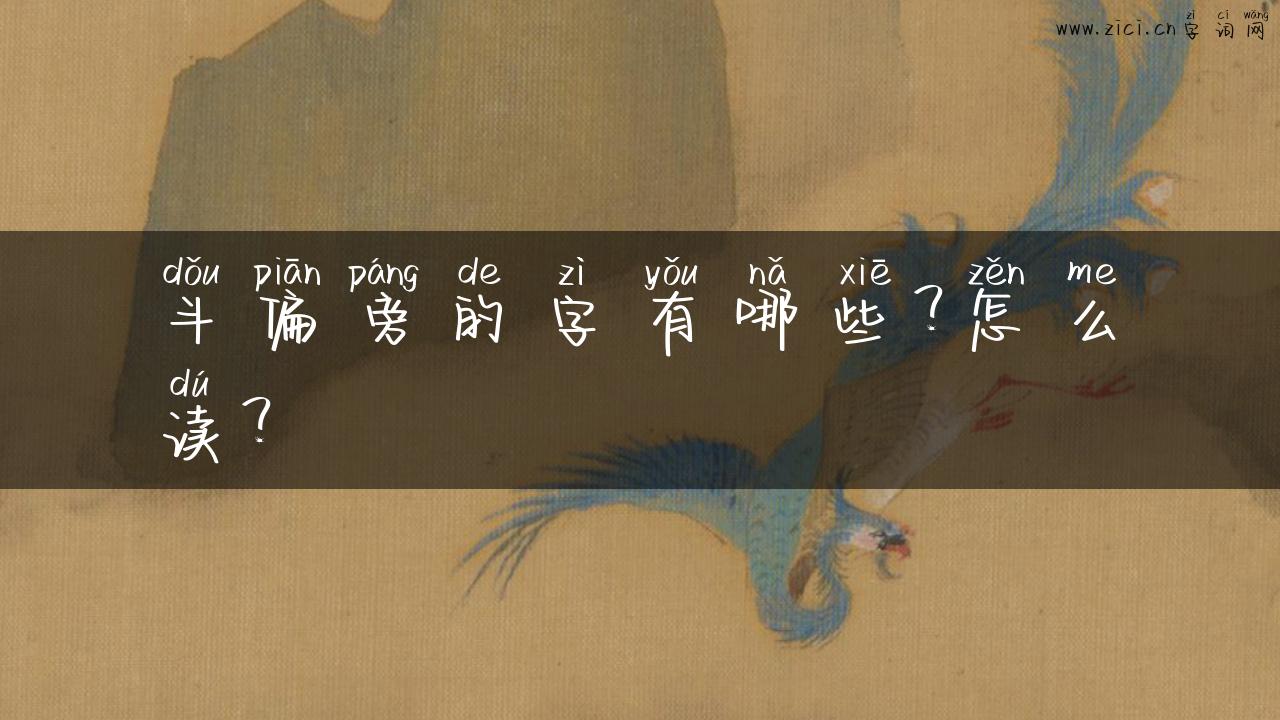 zì cí wǎng
www.zici.cn 字词网
dǒu piān páng de zì yǒu nǎ xiē zěn me
斗偏旁的字有哪些?怎么
dú
读?